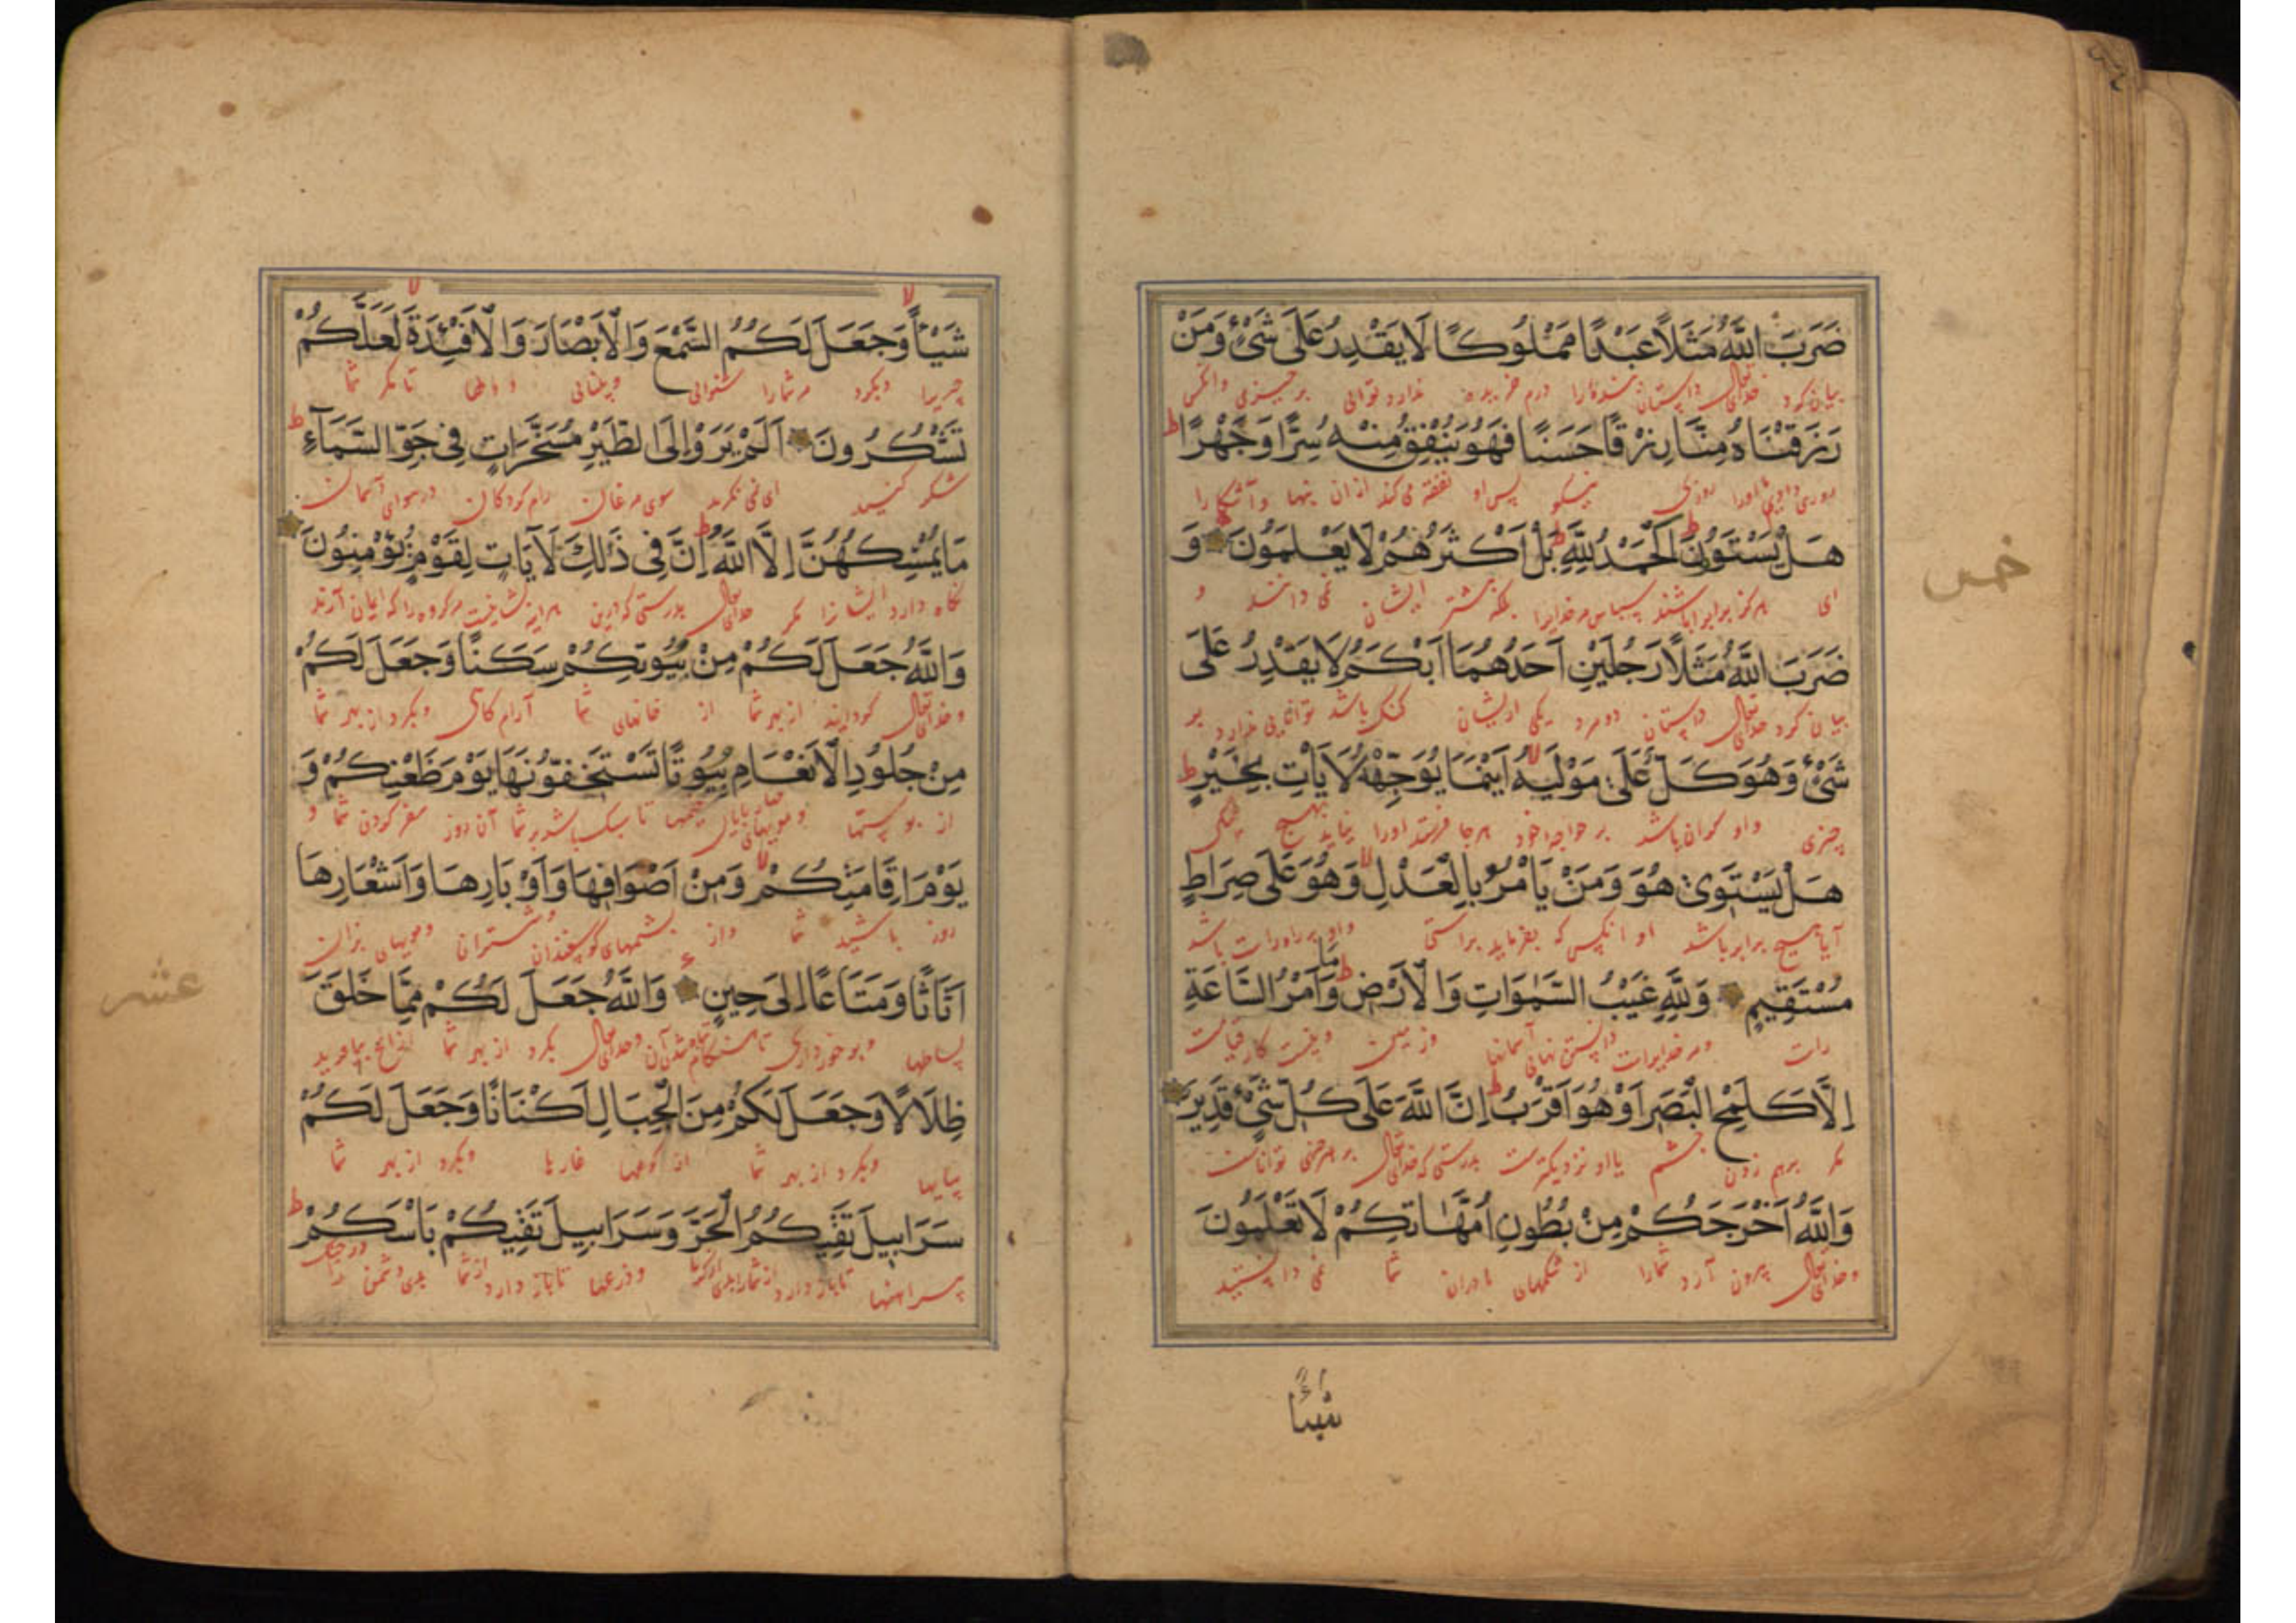 ضَرَبَ اللَّهُ مَثَلًا عَبْدًا مَمْلُوكًا لَا يَقْدِرُ عَلَى شَيْءٍ وَمَنْ
بیان کرد خدای تعالی داستان درم خریده ندارد توانائی بر چیزی وانکس
رَزَقْنَاهُ مِنَّا رِزْقًا حَسَنًا فَهُوَ يُنْفِقُ مِنْهُ سِرًّا وَجَهْرًا ط
روزی دادیم ما اورا روزی نیکو پس او نفقه می کند ازان پنها وآشکارا
هَلْ يَسْتَوُونَ ط الْحَمْدُ لِلَّهِ ط بَلْ أَكْثَرُهُمْ لَا يَعْلَمُونَ وَ
ای هرکز برابر باشند سپاس مر خدایرا بلکه بیشتر ایشان نمی دانند و
ضَرَبَ اللَّهُ مَثَلًا رَجُلَيْنِ أَحَدُهُمَا أَبْكَمُ لَا يَقْدِرُ عَلَى
بیان کرد خدای تعالی داستان دو مرد یکی ازیشان کنک باشد توانایی ندارد بر
شَيْءٍ وَهُوَ كَلٌّ عَلَى مَوْلَيهُ لا أَيْنَمَا يُوَجِّهْهُ لَا يَأْتِ بِخَيْرٍ ط
چیزی واو کران باشد بر خواجه خود هرجا فرستد اورا نیاید بهیچ نیکی
هَلْ يَسْتَوِي هُوَ وَمَنْ يَأْمُرُ بِالْعَدْلِ لا وَهُوَ عَلَى صِرَاطٍ
آیا هیچ برابر باشد او وانکس که بفرماید براستی واو بر راه راست باشد
مُسْتَقِيمٍ وَلِلَّهِ غَيْبُ السَّمٰوَاتِ وَالْأَرْضِ ط وَمَا أَمْرُ السَّاعَةِ
راست ومر خدایراست دانستن نهانی آسمانها وزمین ونیست کار قیامت
إِلَّا كَلَمْحِ الْبَصَرِ أَوْ هُوَ أَقْرَبُ ط إِنَّ اللَّهَ عَلَى كُلِّ شَيْءٍ قَدِيرٌ
مکر برهم زدن چشم یا او نزدیکترست بدرستی که خدای تعالی بر هر چیزی تواناست
وَاللَّهُ أَخْرَجَكُمْ مِنْ بُطُونِ أُمَّهَاتِكُمْ لَا تَعْلَمُونَ
وخدای تعالی بیرون آرد شمارا از شکمهای مادران شما نمی دانستید
شيئًا
خمس
شَيْئًا لا وَجَعَلَ لَكُمُ السَّمْعَ وَالْأَبْصَارَ وَالْأَفْئِدَةَ لا لَعَلَّكُمْ
چیزیرا وبکرد مرشمارا شنوائی وبینائی ودلها تا مکر شما
تَشْكُرُونَ أَلَمْ يَرَوْا إِلَى الطَّيْرِ مُسَخَّرَاتٍ فِي جَوِّ السَّمَاءِ ط
شکر کنید ای نمی نکرید سوی مرغان رام کردکان در هوای آسمان
مَا يُمْسِكُهُنَّ إِلَّا اللَّهُ ط إِنَّ فِي ذَلِكَ لَآيَاتٍ لِقَوْمٍ يُؤْمِنُونَ
نکاه دارد ایشانرا مکر خدای تعالی بدرستی که درین هراینه نشانیست مر کروه را که ایمان آرند
وَاللَّهُ جَعَلَ لَكُمْ مِنْ بُيُوتِكُمْ سَكَنًا وَجَعَلَ لَكُمْ
وخدای تعالی کردانید از بهر شما از خانهای شما آرام کاهی وبکرد از بهر شما
مِنْ جُلُودِ الْأَنْعَامِ بُيُوتًا تَسْتَخِفُّونَهَا يَوْمَ ظَعْنِكُمْ وَ
از پوستها ومویهای خیمها تا سبک باشد بر شما آن روز سفر کردن شما و
يَوْمَ إِقَامَتِكُمْ لا وَمِنْ أَصْوَافِهَا وَأَوْبَارِهَا وَأَشْعَارِهَا
روز باشید شما واز پشمهای کوسفندان وشتران ومویهای بزان
أَثَاثًا وَمَتَاعًا إِلَى حِينٍ وَاللَّهُ جَعَلَ لَكُمْ مِمَّا خَلَقَ
بساطها وبرخورداری تا هنکام وخدای تعالی بکرد از بهر شما ازانچ بیافرید
ظِلَالًا وَجَعَلَ لَكُمْ مِنَ الْجِبَالِ أَكْنَانًا وَجَعَلَ لَكُمْ
سایها وبکرد از بهر شما از کوهها غارها وبکرد از بهر شما
سَرَابِيلَ تَقِيكُمُ الْحَرَّ وَسَرَابِيلَ تَقِيكُمْ بَأْسَكُمْ ط
پیراهنها تا باز دارد از شما وزرهها تا باز دارد از شما بدی دشمن در جنک
عشر